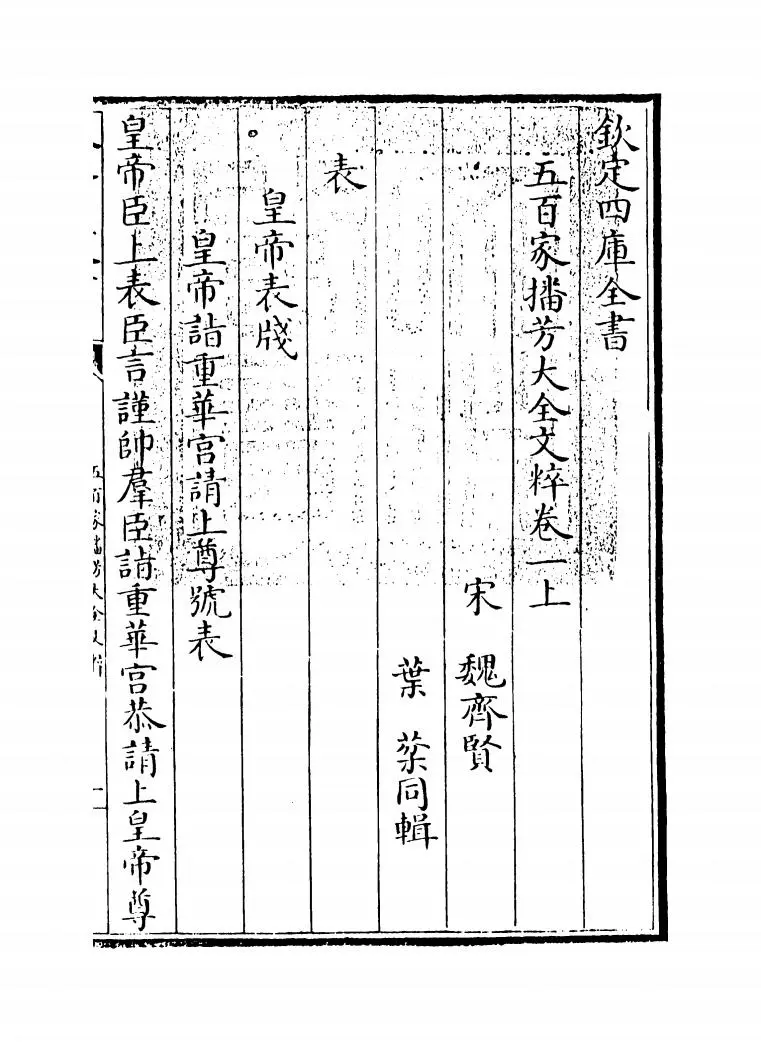 欽定四庫全書
五百家播芳大全文粹卷一上
宋　魏齊賢
葉　棻同輯
表
皇帝表牋
皇帝詣重華宮請上尊號表
皇帝臣上表臣言謹帥羣臣詣重華宮恭請上皇帝尊
五百家播芳大全文粹